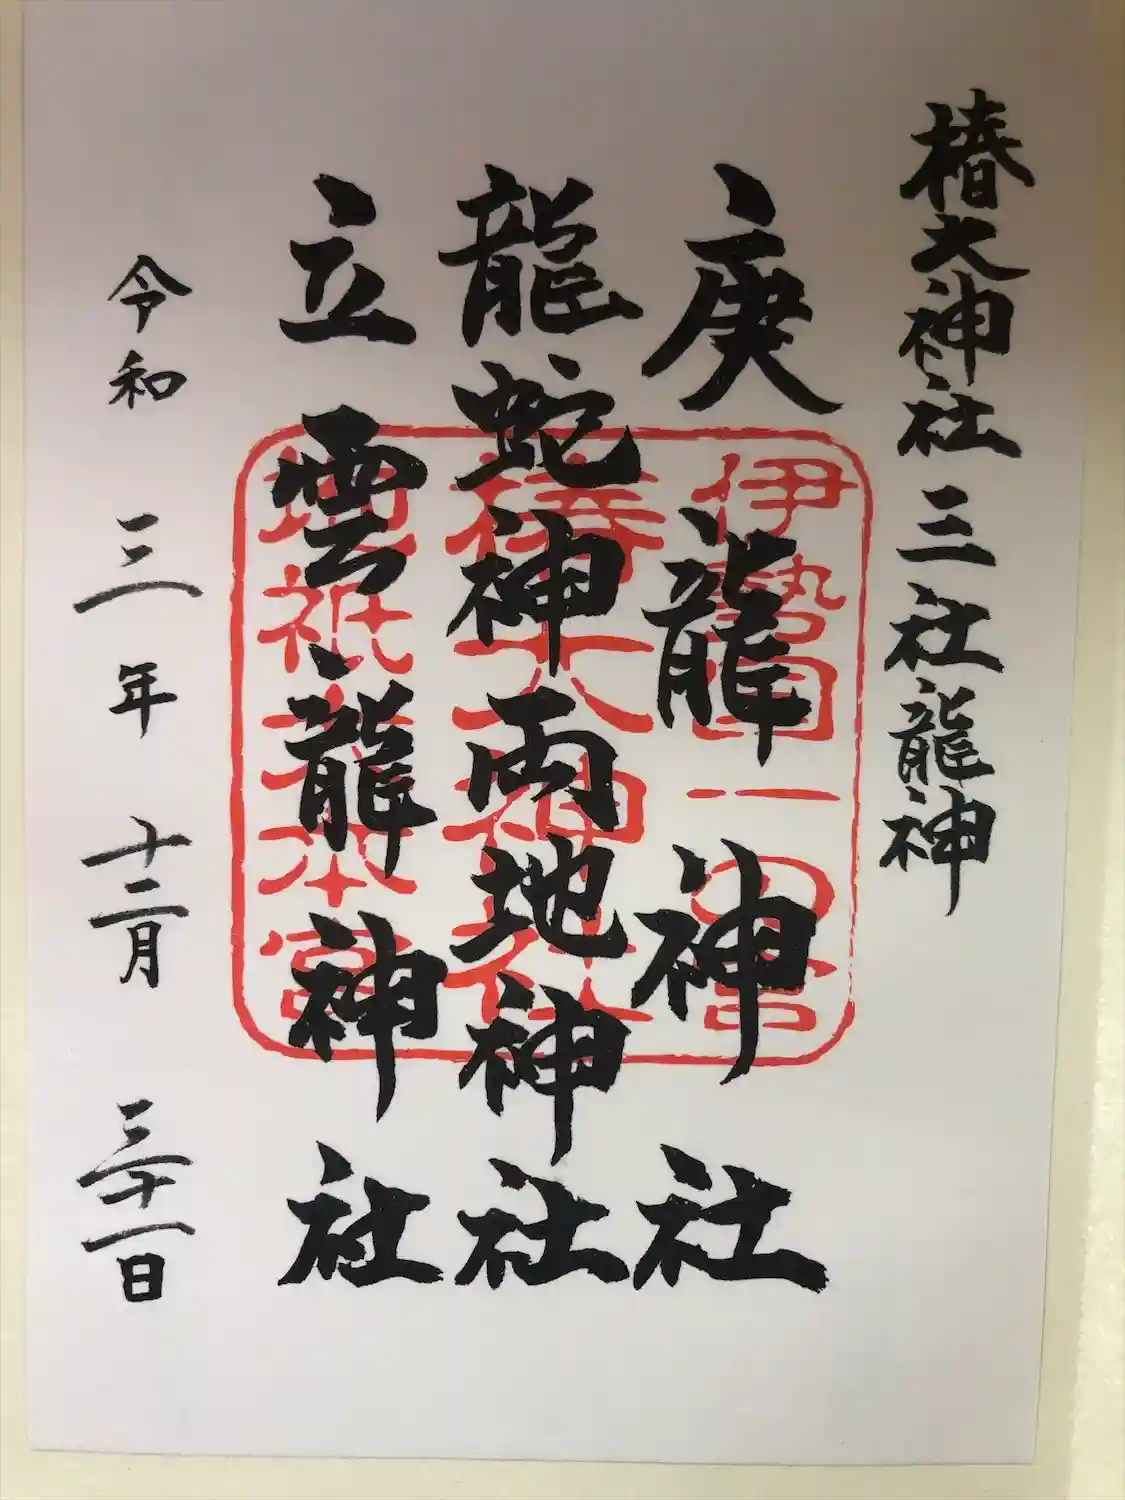 椿大神社三社龍神
庚龍神社
龍蛇神両地神社
立雲龍神社
令和三年十二月三十一日
伊勢国一の宮
椿大神社
地祇大本宮